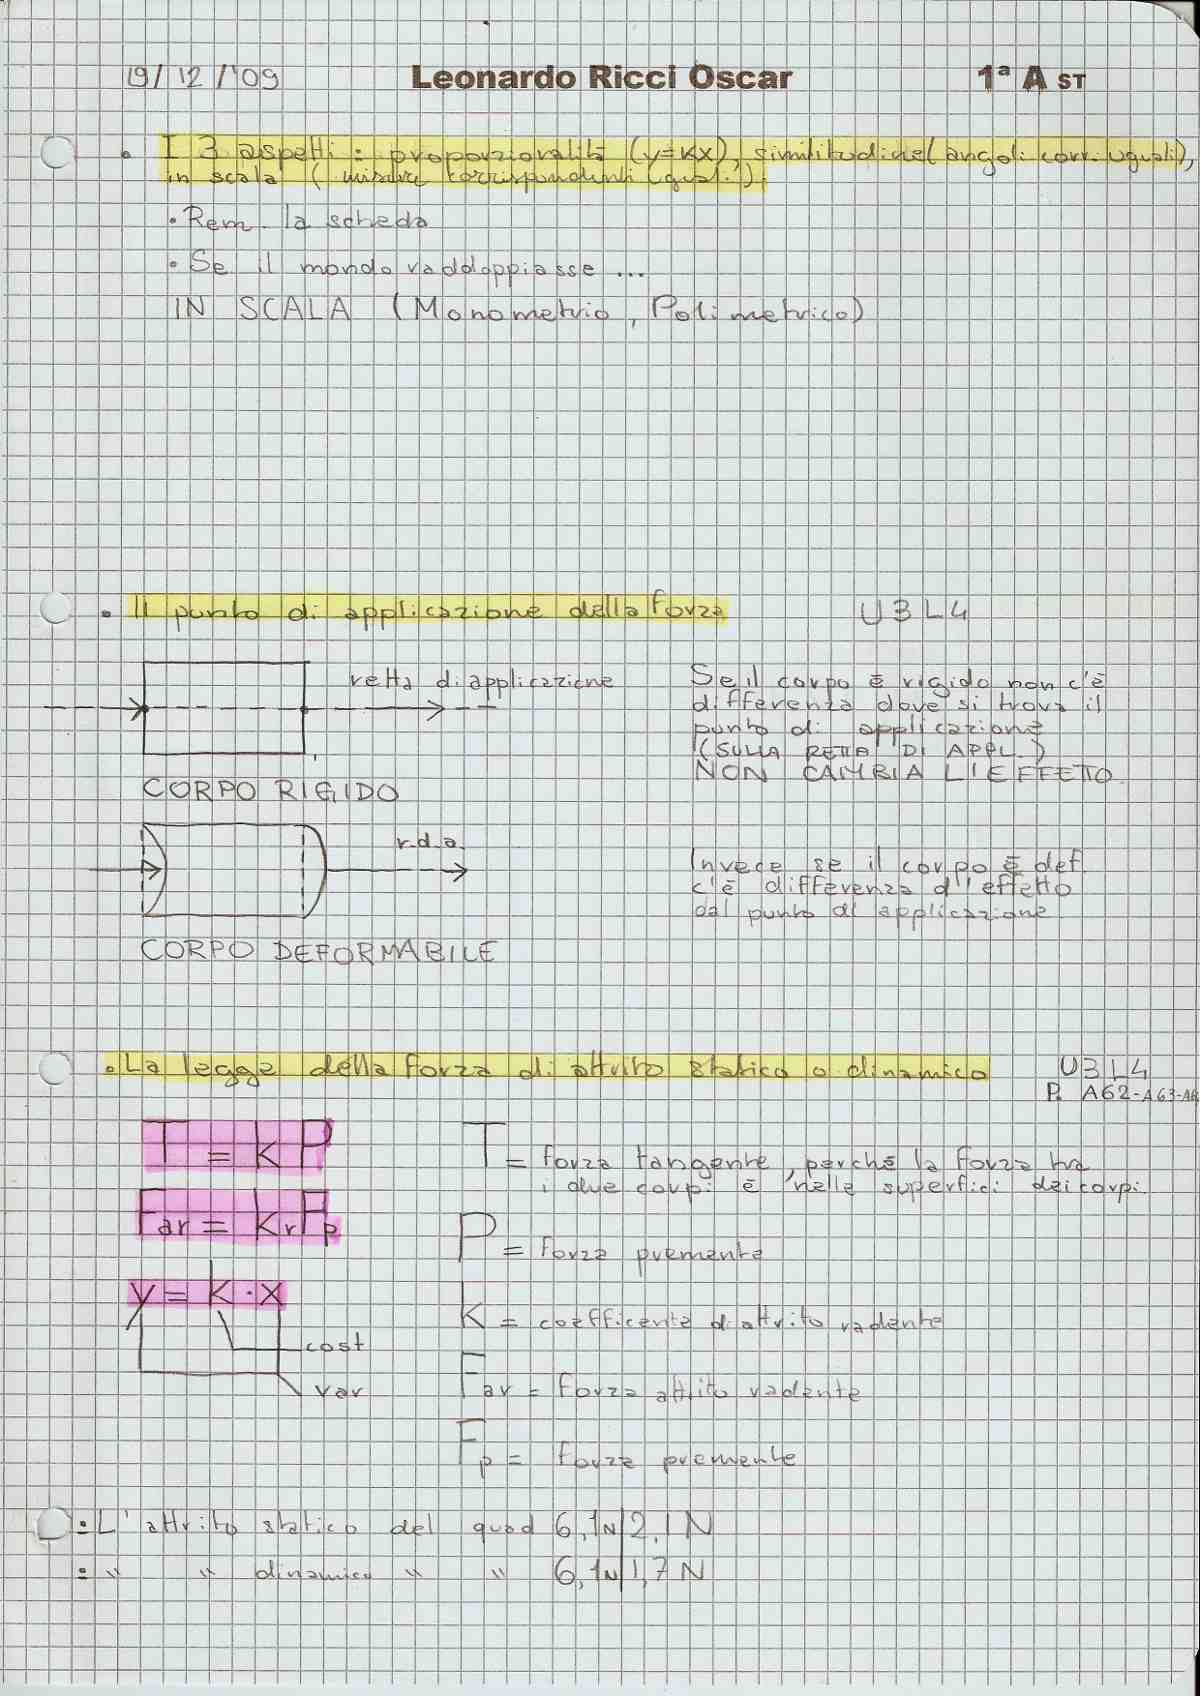 19/12/'09 Leonardo Ricci Oscar 1ª A ST
• I 3 aspetti: proporzionalità (y=kx), similitudine (angoli corr. uguali),
in scala (misure corrispondenti uguali).
• Rem. la scheda
• Se il mondo raddoppiasse ...
IN SCALA (Monometrio, Polimetrico)
• Il punto di applicazione della forza U3L4
retta di applicazione
CORPO RIGIDO
Se il corpo è rigido non c'è
differenza dove si trova il
punto di applicazione
(SULLA RETTA DI APPL.)
NON CAMBIA L'EFFETTO
r.d.a.
CORPO DEFORMABILE
Invece se il corpo è def.
c'è differenza d'effetto
dal punto di applicazione
• La legge della forza di attrito statico o dinamico U3L4
P. A62-A63-A6
T = k P
Far = kr Fp
y = k · x
cost
var
T = forza tangente, perché la forza tra
i due corpi è nelle superfici dei corpi.
P = forza premente
k = coefficente di attrito radente
Far = forza attrito radente
Fp = forza premente
• L'attrito statico del quad 6,1N|2,1N
• " " dinamico " " 6,1N|1,7N